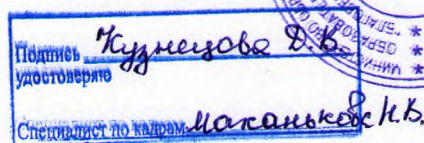 Подпись Кузнецова Д.В.
удостоверяю
Специалист по кадрам Маканькова Н.В.